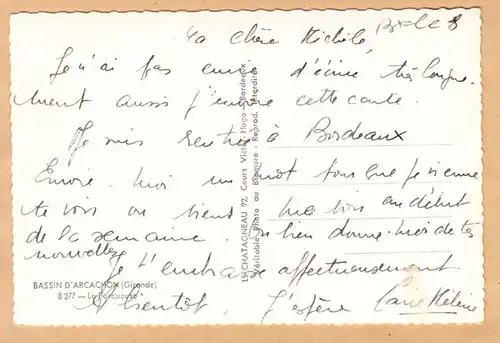 Ma chère Michèle, Bx le 8
Je n'ai pas envie d'écrire très longue-
ment aussi j'envoie cette carte.
Je suis rentrée à Bordeaux
Envoie-moi un mot pour que je vienne
te voir ou viens me voir au début
de la semaine. Ou bien donne-moi de tes
nouvelles
Je t'embrasse affectueusement
A bientôt, j'espère Marie Hélène
BASSIN D'ARCACHON (Gironde)
8 277 — La
CHATAGNEAU 92, Cours Victor-Hugo - Bordeaux
Véritable Photo au Bromure - Reprod. Interdite